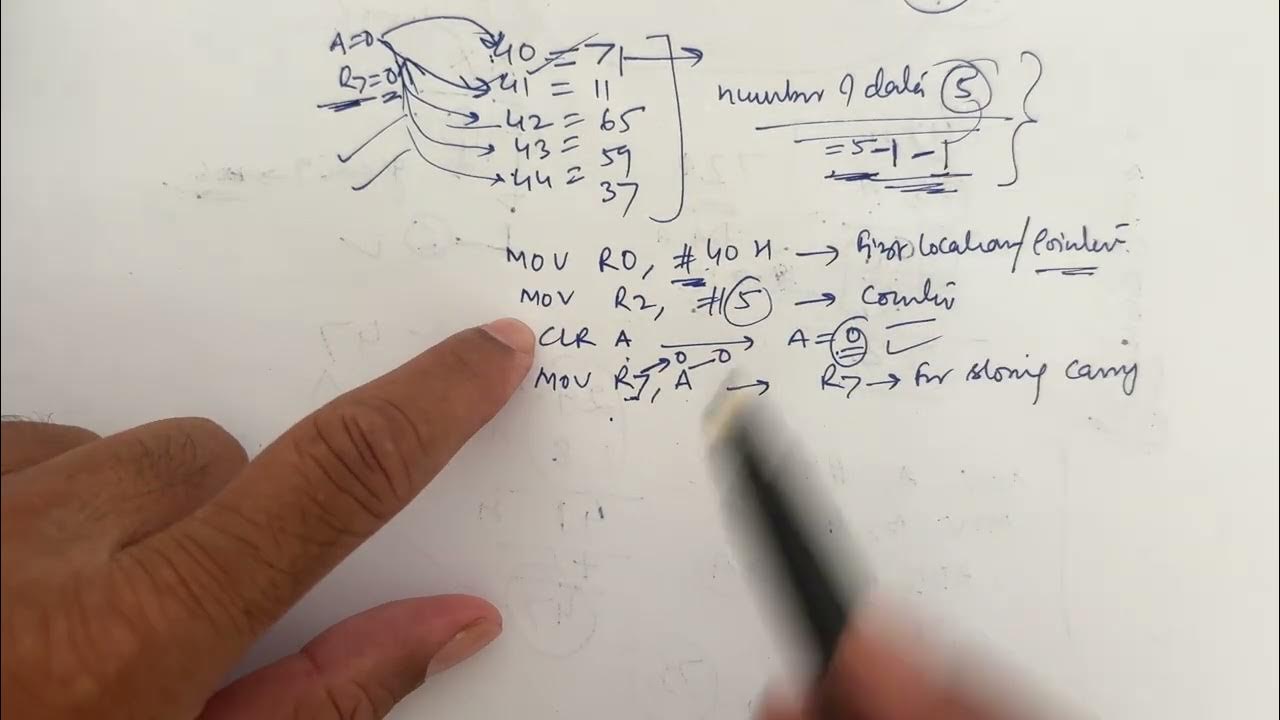 A=0
R7=0
40 = 71
41 = 11
42 = 65
43 = 59
44 = 37
number of data 5
=5-1-1
MOV R0, #40H → First location/Pointer
MOV R2, #5 → Counter
CLR A → A=0
0 0
MOV R7, A → R7 → for storing carry